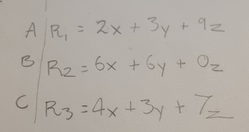 A R₁ = 2x + 3y + 9z
B R₂ = 6x + 6y + 0z
C R₃ = 4x + 3y + 7z